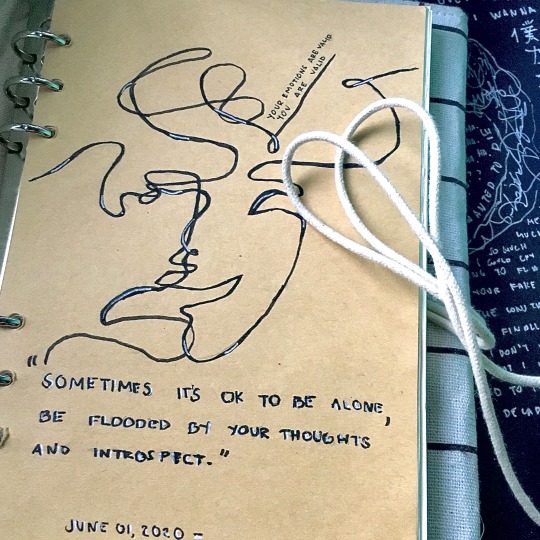 YOUR EMOTIONS ARE VALID
YOU ARE VALID
"SOMETIMES IT'S OK TO BE ALONE,
BE FLOODED BY YOUR THOUGHTS
AND INTROSPECT."
JUNE 01, 2020 -
I WANNA
僕
WANTED TO DIE
ME
MUCH
SO MUCH
I COULD CRY
YOUR FAKE
FINALL
I DON'T